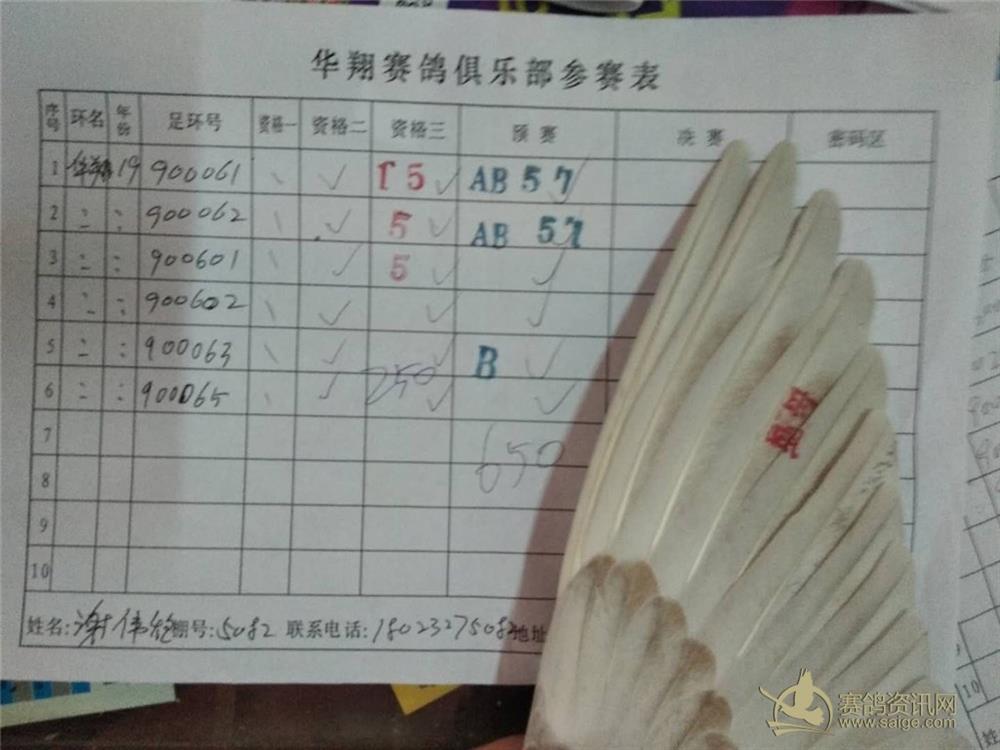 华翔赛鸽俱乐部参赛表
序号 环名 年份 足环号 资格一 资格二 资格三 预赛 决赛 密码区
1 华翔 19 900061 \ ✓ 15 ✓ AB 57 ✓
2 〃 〃 900062 \ ✓ 5 ✓ AB 57 ✓
3 〃 〃 900601 \ ✓ 5 ✓ ✓
4 〃 〃 900602 \ ✓ ✓ ✓
5 〃 〃 900063 \ ✓ ✓ B ✓
6 〃 〃 900065 \ ✓ 250 ✓ ✓
7 650
8
9
10
姓名:谢伟 棚号:5082 联系电话:18023275082 地址
10
姓
赛鸽资讯网
www.saige.com